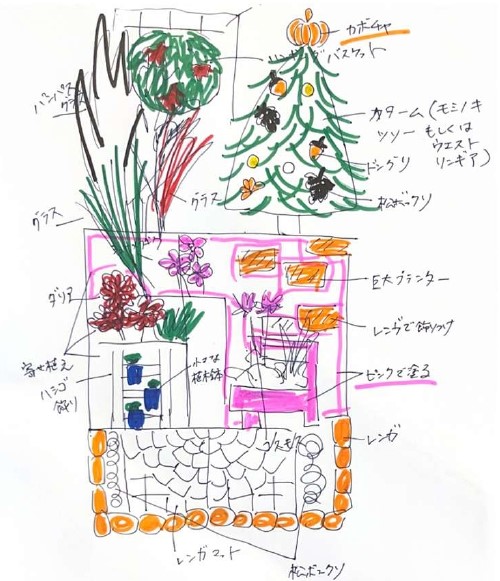 カボチャ
ハンギングバスケット
パンパスグラス
カターム(モミノキ
ツリー もしくは
ウエスト
リンギア)
ドングリ
グラス
松ボックリ
グラス
巨大プランター
ダリア
レンガで飾りつけ
寄せ植え
ハシゴ
飾り
小さな
植木鉢
ピンクで塗る
コスモス
レンガ
レンガマット
松ボックリ